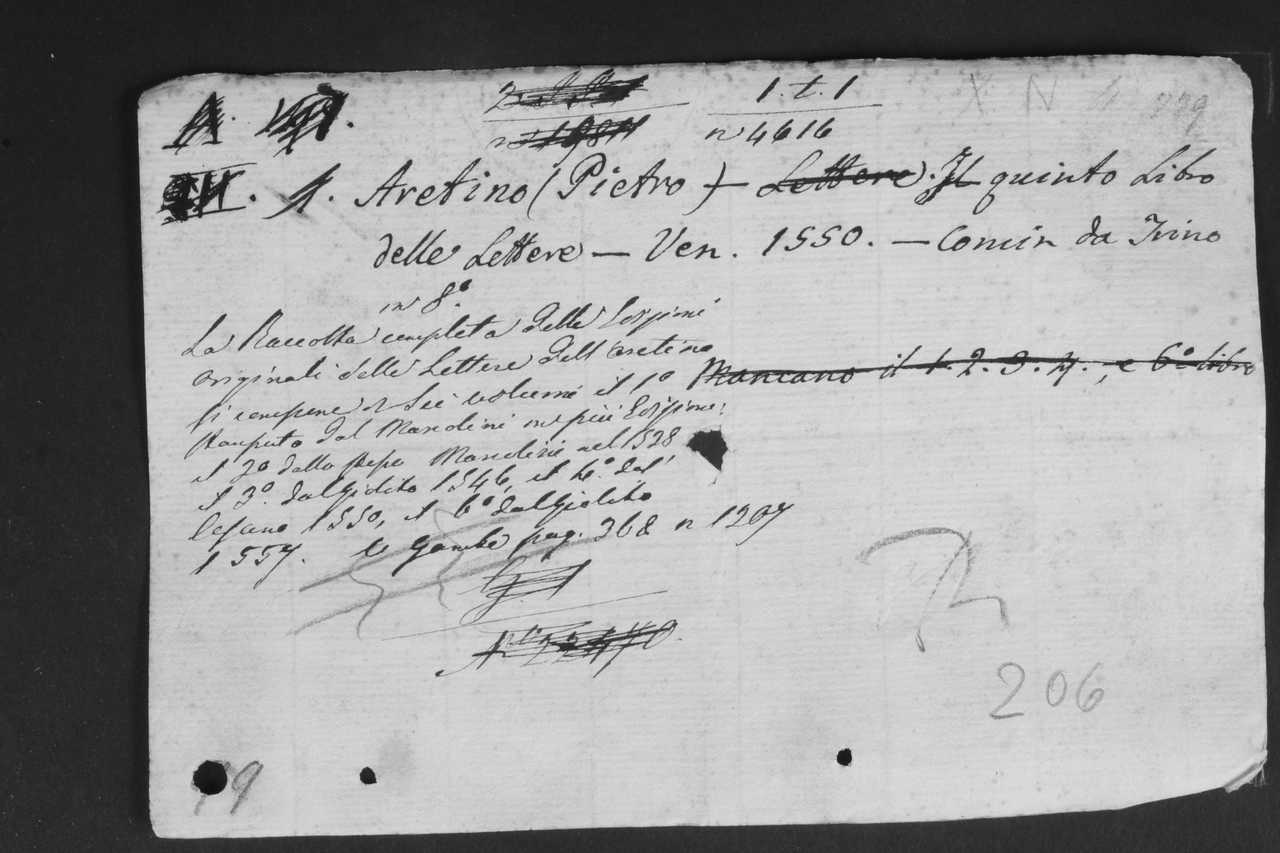 1. t. 1
n 4616
X N 4
1. Aretino (Pietro) — Lettere. Il quinto Libro
delle Lettere — Ven. 1550. — Comin da Trino
in 8.°
La Raccolta completa delle Edizioni
originali delle Lettere dell'Aretino
si compone di Sei volumi il 1°
Mancano il 1. 2. 3. 4., e 6° libro
stampato dal Marcolini in più Edizioni:
il 2° dallo stesso Marcolini nel
il 3°. dal Giolito 1546, il 4°. dal
Cesano 1550, il 6° dal Giolito
1557. V. Gamba pag. 368 n 1207
N° 22470.
206
99